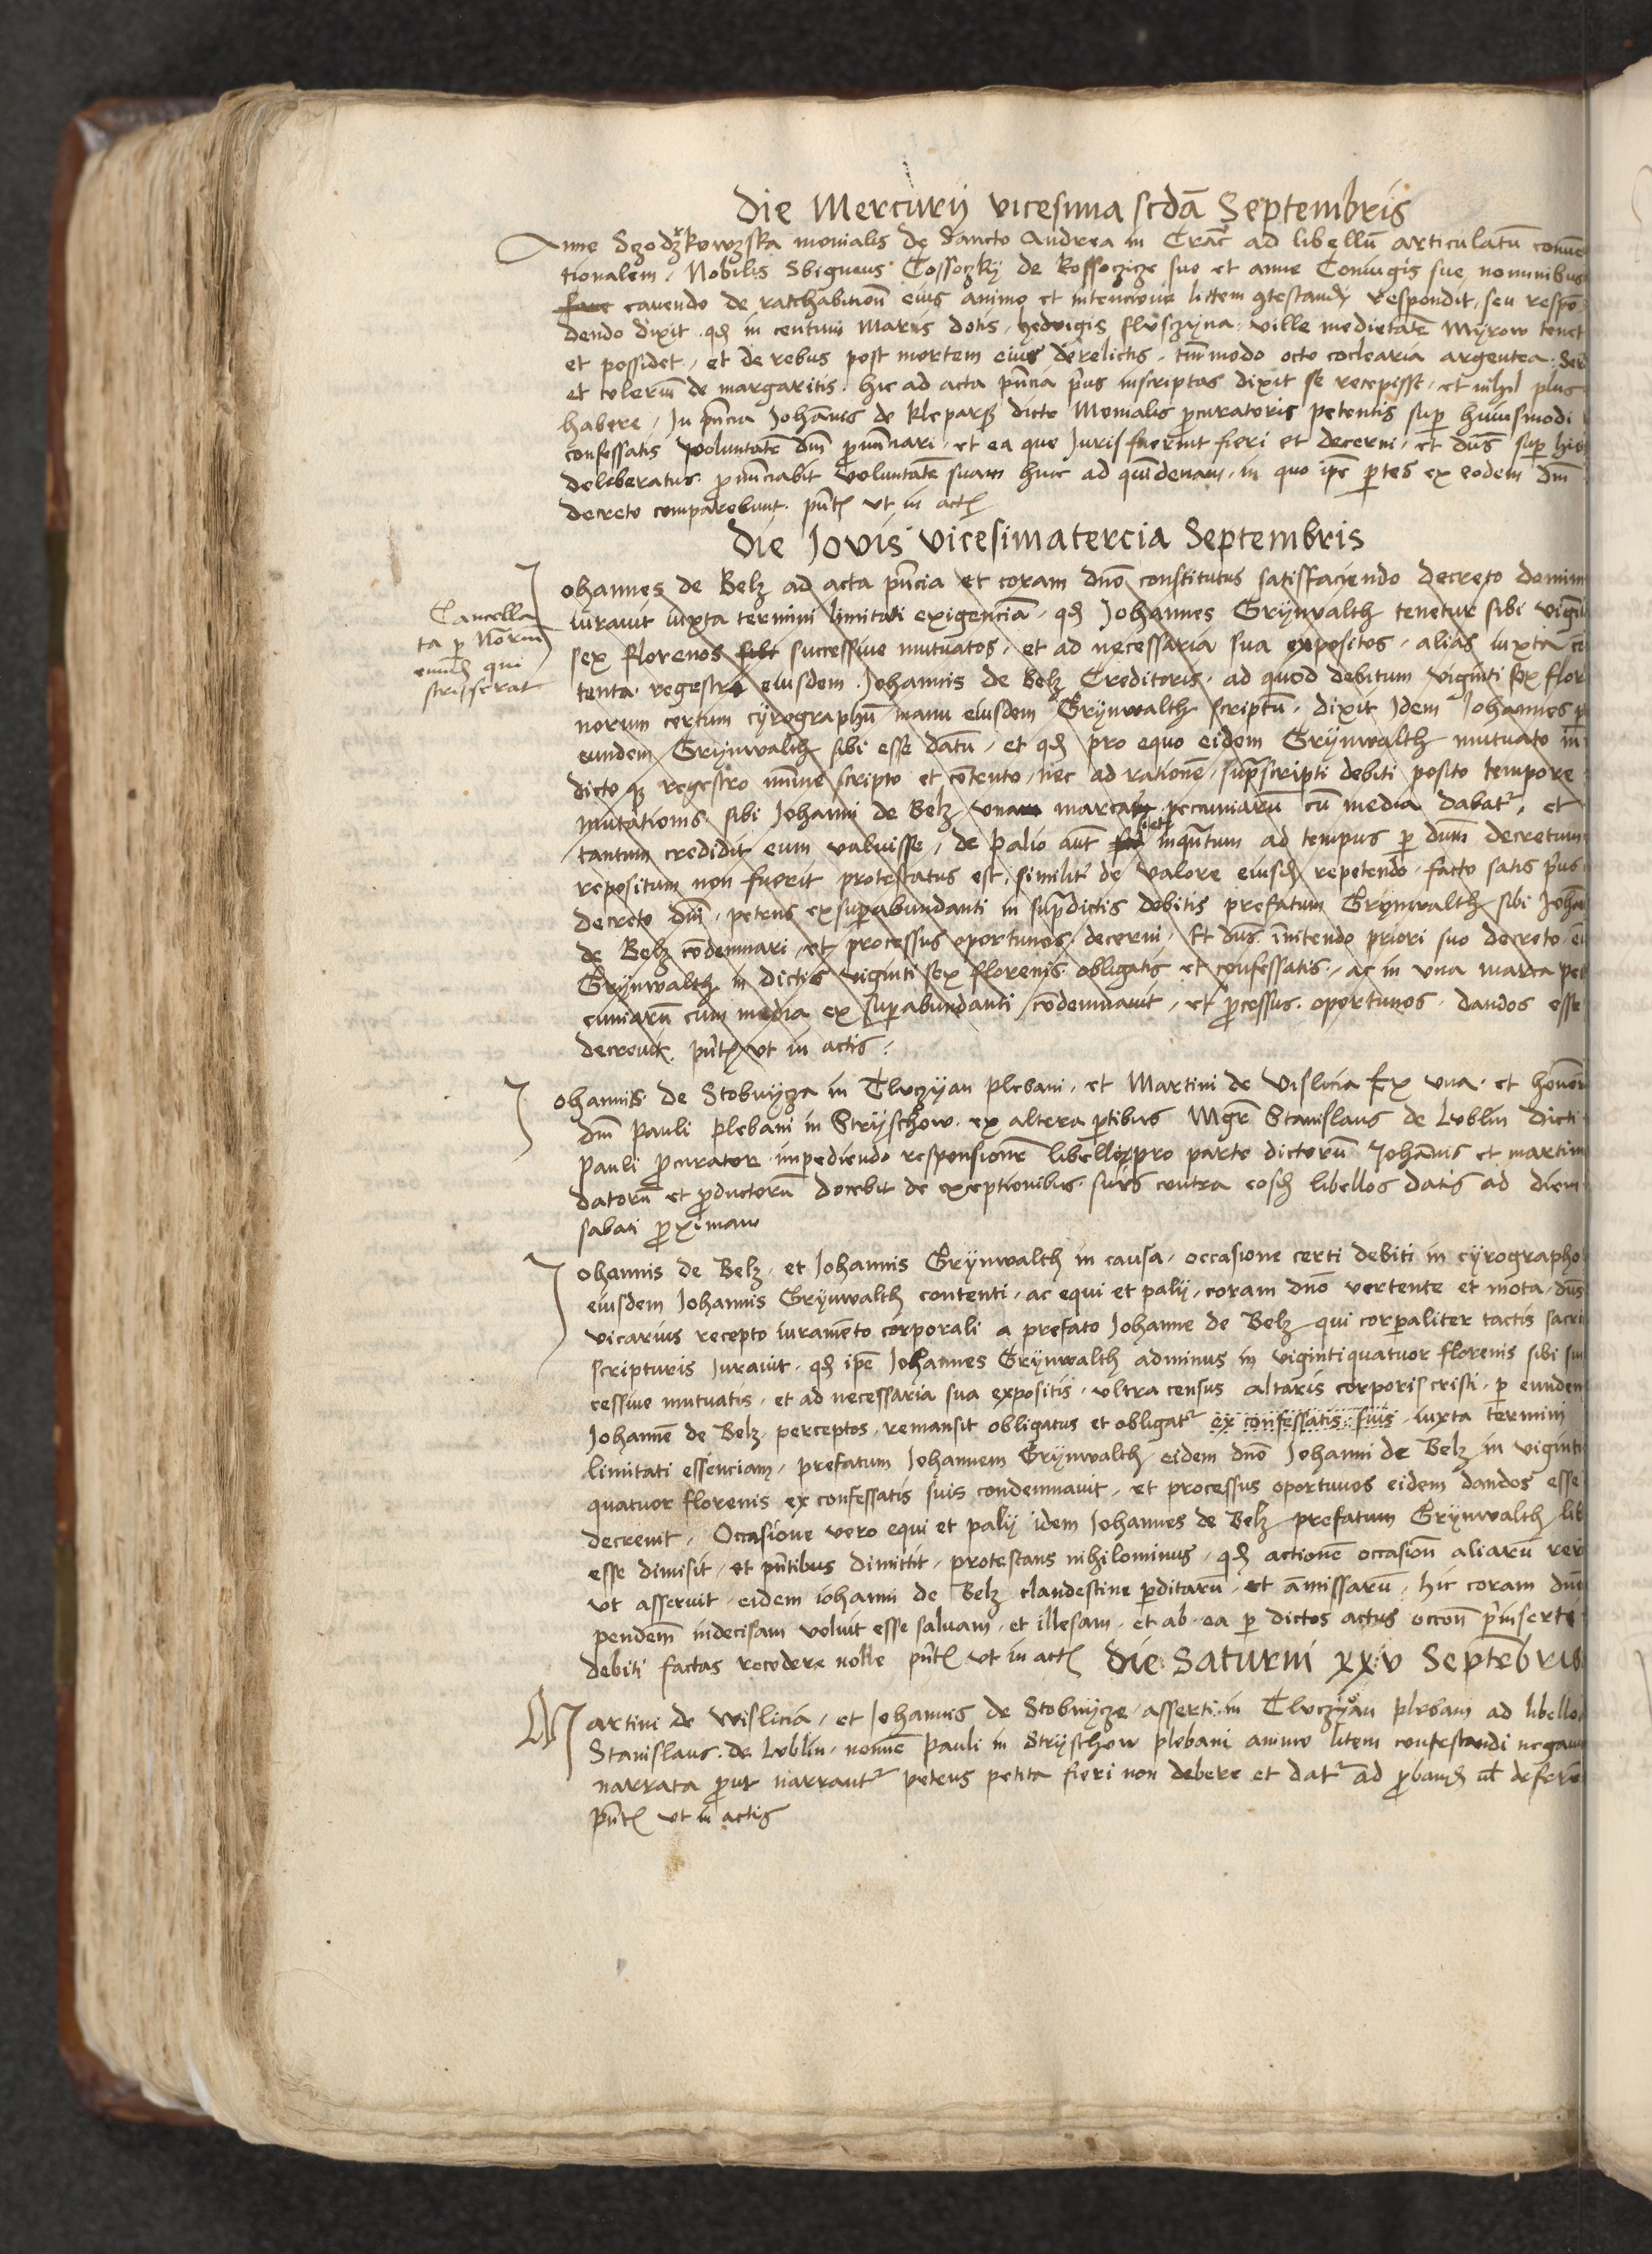 Die Mercurij vicesima scdā Septembris
Anne Szodzkowzska monialis de Sancto Andrea in Crac ad libellū articulatū conuē
tionalem, Nobilis Sbigneus Cossoczky de kossoczicze suo et anne Coniugis sue nominibus
cauendo de ratihabitioñ eius animo et intencione littem 9testandj respondit seu respō
dendo dixit qđ in centum Marcis dotis hedvigis ville medietatē Myrow tenet
et possidet, et de rebus post mortem eius derelictis, tm̄modo octo coclearia argentea
et de margaritis hic ad acta pn̄cia pus inscriptas dixit se recepisse, et nihil plus
habere, In pn̄cia Johānis de kleparz dicte Monialis pcuratoris petentis sup huiusmodi
confessatis voluntatē dm̄ pnūnciari, et ea que Juris fuerint fieri et decerni, et dūs sup his
deliberatus pnūnciabit voluntatē suam hinc ad quīdenam, in quo ipē ptes ex eodem dm̄
decreto comparebunt. pn̄tꝭ vt in actꝭ
Die Jovis vicesimatercia Septembris
Johannes de Belz ad acta pn̄cia et coram dnō constitutus satisfaciendo decreto domini
iurauit iuxta termini limitati exigenciā, qđ Johannes Grijnvalth tenetur sibi viginti
sex florenos successiue mutuatos, et ad necessaria sua expositos, alias iuxta cō
tenta regestri eiusdem Johannis de Belz Creditoris, ad quod debitum viginti sex flore
norum certum cyrographū manu eiusdem Grijnwalth scriptū, dixit Idem Johannes p
eundem Grijnwalth sibi esse datū, et qđ pro equo eidem Grijnwalth mutuato in
dicto regestro minime scripto et cōtento, nec ad rationē supscripti debiti posito tempore
mutationis sibi Johanni de Belz vna marca pecuniarū cū media dabatr, et
tantum credidit eum valuisse, de palio aut inqtum ad tempus p dūm decretum
repositum non fuerit protestatus est, similitr de valore eiusđ repetendo facto satis pus
decreto dm̄, petens exsupabundanti in supdictis debitis prefatum Grijnwalth sibi Johā
de Belz cōdemnari, et processus oportunos decerni, Et dūs inītendo priori suo decreto
Grijnwalth in dictis viginti sex florenis obligatis et confessatis, ac in vna marca pe
cuniarū cum media ex supabundanti cōdemnauit, et pcessus oportunos dandos esse
decreuit. pn̄tꝭ vt in actis.
Cancella
ta p Norm̄
eiusđ qui
scripserat
Johannis de Stobnijcza in Tluczijan plebani, et Martini de Vislicia Ex vna et
dm̄ Pauli plebani in Strijschow ex altera ptibus Mgr̄ Stanislaus de Lublin dicti
Pauli pcurator impediendo responsionē libellis pro parte dictorū Johānis et martini
datorū et pductorū docebit de exceptionibus suis contra eosđ libellos datis ad diem
sabati pximam
Johannis de Belz, et Johannis Grijnwalth in causa, occasione certi debiti in cyrographo
eiusdem Johannis Grijnwalth contenti, ac equi et palij, coram dnō vertente et mota, dūs
vicarius recepto iuramēto corporali a prefato Johanne de Belz qui corpaliter tactis sacris
scripturis Jurauit, qđ ipē Johannes Grijnwalth adminus in vigintiquatuor florenis sibi suc
cessiue mutuatis, et ad necessaria sua expositis, vltra census altaris corporis cristi, p eundem
Johannē de Belz perceptos, remansit obligatus et obligatr ex confessatis suis iuxta termini
limitati essenciam, prefatum Johannem Grijnwalth eidem dnō Johanni de Belz in viginti
quatuor florenis ex confessatis suis condemnauit, et processus oportunos eidem dandos esse
decreuit, Occasione vero equi et palij idem Johannes de Belz prefatum Grijnwalth lib
esse dimisit, et pn̄tibus dimittit, protestans nihilominus, qđ actionē occasioñ aliarū rer
vt asseruit, eidem iohanni de Belz clandestine pditarū, et āmissarū, hic coram dnō
pendem̄ indecisam voluit esse saluam, et illesam, et ab ea p dictos actus occoñ pinserti
debiti factas recedere nolle pn̄tꝭ vt in actꝭ Die Saturni xxv Septēbris
Martini de Wislicia, et Johannis de Stobnijcze asserti in Tluczijan plebani ad libellos
Stanislaus de Lublin, nomīe Pauli in Strijschow plebani animo litem contestandi negauit
narrata put narrantr petens petita fieri non debere et datr ad pbanđ
pn̄tꝭ vt in actis